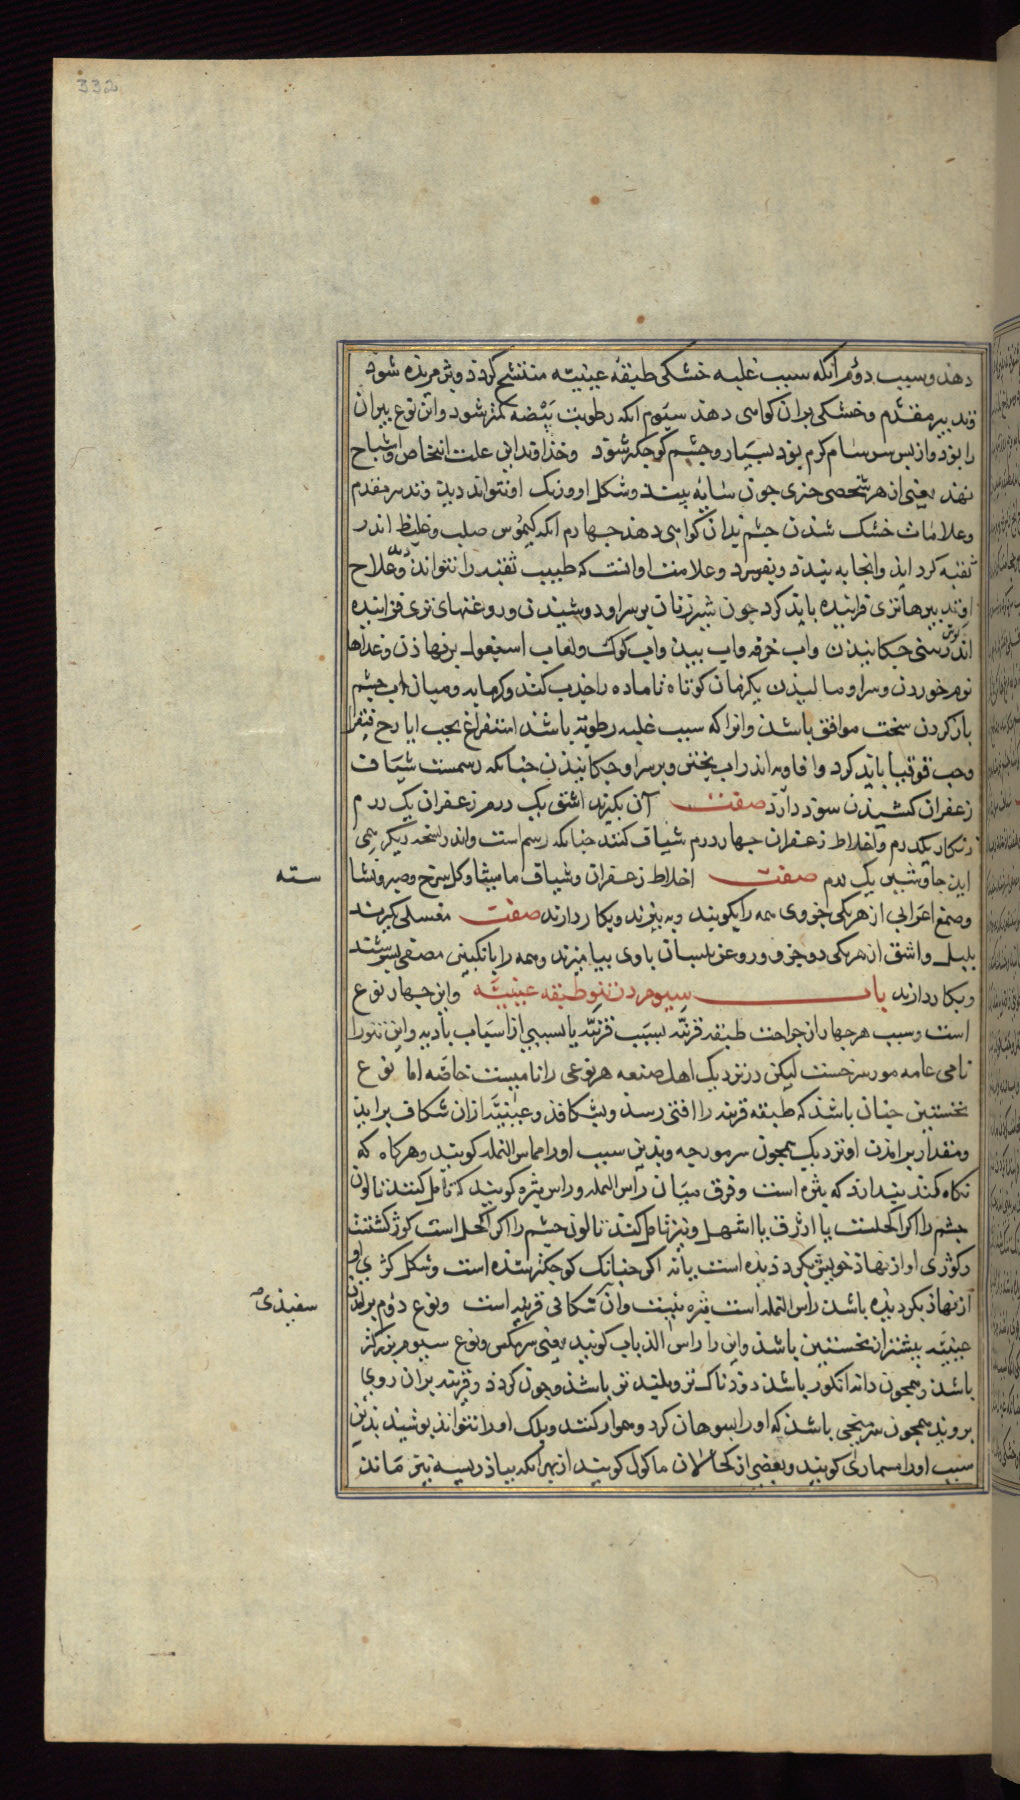 332
دهند وسبب دوم انکه سبب غلبه خشکی طبقه عینیه متشنج کردد وپژمریده شود
وتدبیر مقدم وخشکی بران کواهی دهند سیوم انکه رطوبت بیضه کمتر شود واین نوع پیران
را بود واز پس سرسام کرم بود بسیار وچشم کوچکتر شود وخداوند این علت اشخاص واشباح
بیند یعنی از هر شخصی چیزی چون سایه بیند وشکل اورونک او نتواند دید وتدبیر مقدم
وعلامات خشک شدن چشم بدان کواهی دهند چهارم انکه کیموس صلب وغلیظ اندر
ثقبه کرد اید وانجا به بندد وبفسرد وعلامت او انست که طبیب ثقبه را نتواند دید وعلاج
او تدبیرهاتری فزاینده باید کرد چون شیر زنان بر سر او دوشیدن وروغنهای تری فزاینده
اندر بینی چکانیدن واب خرفه واب بید واب کوک ولعاب اسبغول برنهاذن وغذاها
نرم خوردن وسر او مالیدن یکزمان کوتاه تا ماده را جذب کند وکرمابه ومیان اب چشم
باز کردن سخت موافق باشد وانرا که سبب غلبه رطوبت باشد استفراغ بحب ایارج فیقرا
وحب قوقیا باید کرد وافاویه اندر اب پختن وبر سر او چکانیدن چنانکه رسمست شیاف
زعفران کشیدن سود دارد صفت آن بکیرند اشق یک درم زعفران یک درم
زنکار یکدرم واخلاط زعفران چهار درم شیاف کنند چنانکه رسم است واندر نسخه دیکر می
اید جاوشیر یک درم صفت اخلاط زعفران وشیاف مامیثا وکل سرخ وصبر ونشا
سته
وصمغ اعرابی از هریکی جزوی همه را بکوبند وبه بیزند وبکار دارند صفت مغسلی کیرند
پلپل واشق از هریکی دو جزو وروغن بلسان باوی بیامیزند وهمه را بانکبین مصفی بسرشند
وبکار دارند باب سیوم در نتو طبقه عینیه واین چهار نوع
است وسبب هر چهار از جراحت طبقه قرنیه بسبب قرنیه یا بسببی از اسباب بادیه واین نتو را
نامی عامه مورسرخست لیکن در نزدیک اهل صنعه هر نوعی را نامیست خاصه اما نوع
نخستین چنان باشد که طبقه قرنیه را افتی رسد وبشکافد وعینیه از ان شکاف براید
ومقدار بر امدن او نزدیک همچون سر مورچه وبدین سبب او را راس النمله کویند وهرکاه که
نکاه کند پندارد که بثره است وفرق میان راس النمله وراس بثره کویند که تامل کنند تا لون
چشم را اکر اکحلست یا ازرق یا اشهل ونیز تامل کند تا لون چشم را اکر اکحل است کوژ کشتن
وکوژی او از نهاد خویش بکردیده است یا نه اکر چنانک کوچکتر شده است وشکل کژی او
از نهاد بکردیده باشد راس النمله است بثره نیست وان شکافی قرنیه است ونوع دوم بر امدن
سفیدی
عینیه بیشتر از نخستین باشد واین را راس الذباب کویند یعنی سر مکس ونوع سیوم بزرکتر
باشد وهمچون دانه انکور باشد دردناک تر وپلید تر باشد وچون کردد وقرنیه بر ان روی
بروید همچون سر میخی باشد که او را بسوهان کرد وهموار کنند وپلک او را نتواند پوشید بدین
سبب او را مسماری کویند وبعضی از کحالان ماکول کویند از بهر انکه بباذ ریسه نیز ماند